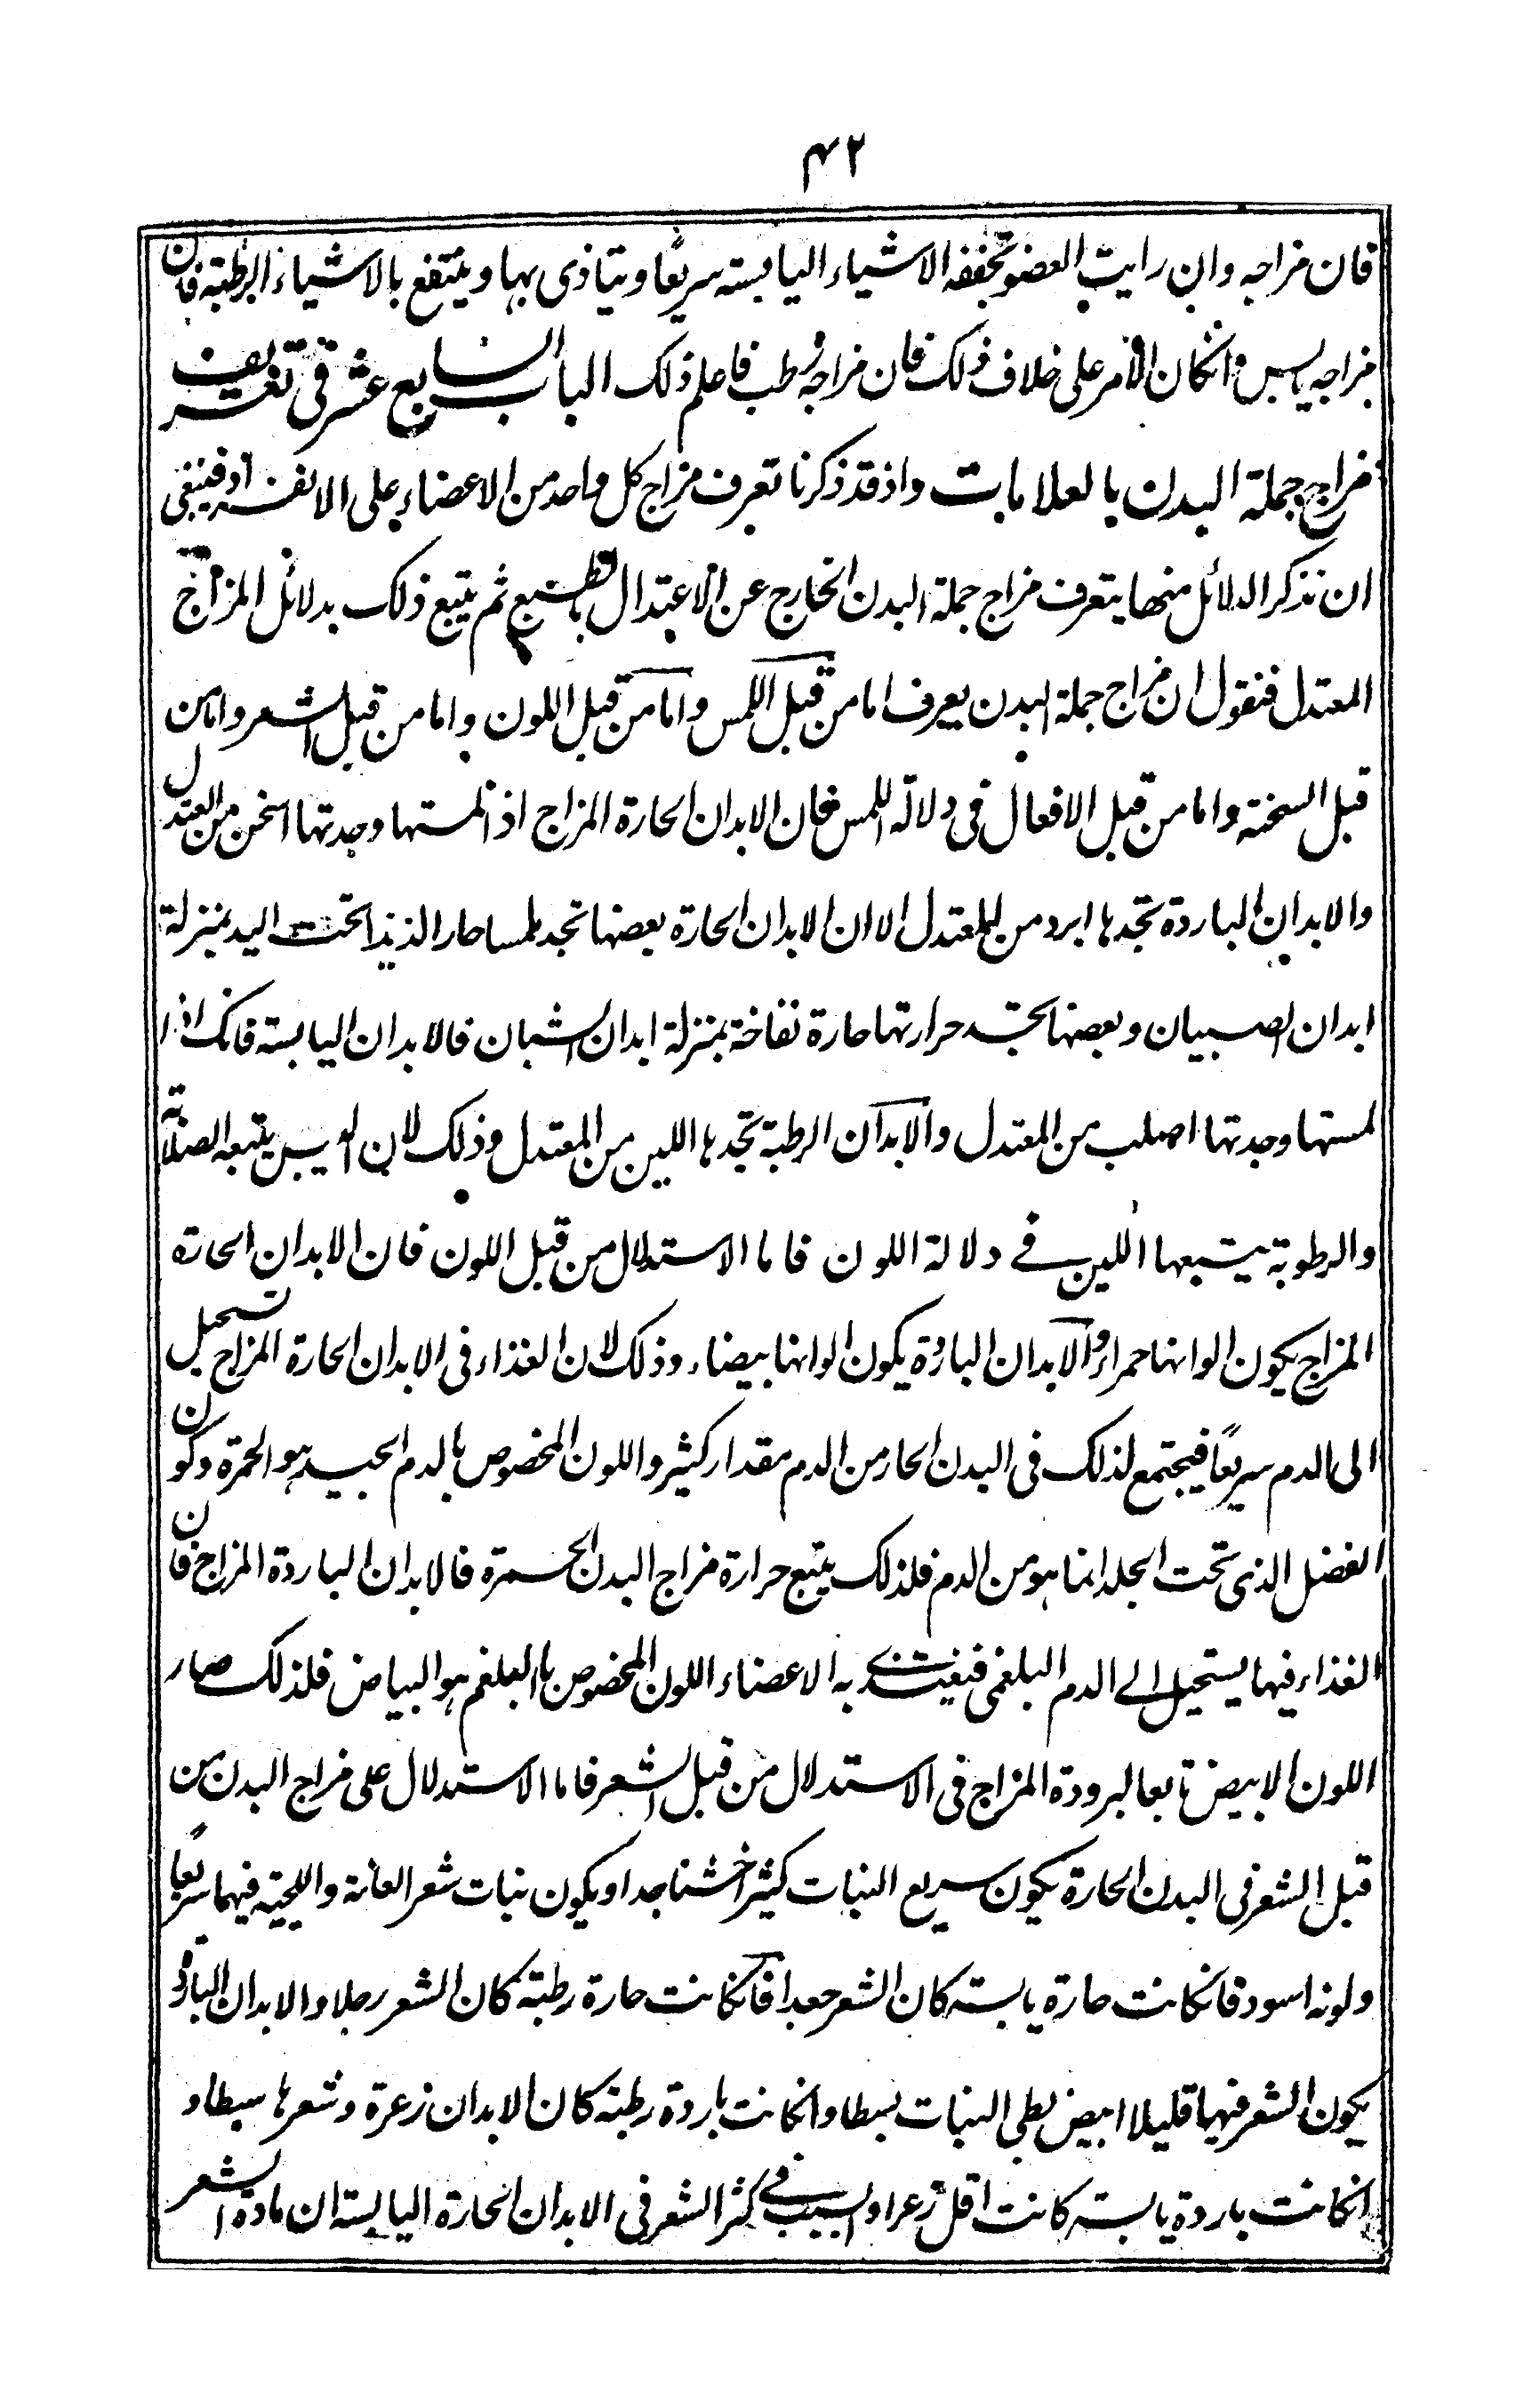 ۴۲
فان مزاجه وان رايت العضو تجففه الاشياء اليابسته سريعًا ويتاذى بها وينتفع بالاشياء الرطبته فان
مزاجه يابس وانكان الأمر على خلاف ذلك فان مزاجه رطب فاعلم ذلك الباب السابع عشر فى تعريف
مزاج جملة البدن بالعلامات واذ قد ذكرنا تعرف مزاج كل واحد من الاعضاء على الانفراد فينبغى
ان نذكر الدلائل منها يتعرف مزاج جملة البدن الخارج عن الاعتدال بالطبع ثم يتبع ذلك بدلائل المزاج
المعتدل فنقول ان مزاج جملة البدن يعرف اما من قبل اللمس واما من قبل اللون واما من قبل الشعر واما من
قبل السخنة واما من قبل الافعال فى دلالة اللمس فان الابدان الحارة المزاج اذا لمستها وجدتها اسخن من المعتدل
والابدان الباردة تجدها ابرد من المعتدل الا ان الابدان الحارة بعضها تجد لمسا حارا لذيذا تحت اليد بمنزلة
ابدان الصبيان وبعضها تجد حرارتها حارة نفاخة بمنزلة ابدان الشبان فالابدان اليابسته فانك اذا
لمستها وجدتها اصلب من المعتدل والابدان الرطبة تجدها اللين من المعتدل وذلك لان اليبس يتبعه الصلابة
والرطوبة يتبعها اللين فے دلالة اللون فاما الاستدلال من قبل اللون فان الابدان الحارة
المزاج يكون الوانها حمراء والابدان الباردة يكون الوانها بيضاء وذلك لان الغذاء فى الابدان الحارة المزاج تسحيل
الى الدم سريعًا فيجتمع لذلك فى البدن الحار من الدم مقدار كثير واللون المخصوص بالدم الجيد هو الحمرة وكون
الفضل الذى تحت الجلد انما هو من الدم فلذلك يتبع حرارة مزاج البدن الحمرة فالابدان الباردة المزاج فان
الغذاء فيها يستحيل الے الدم البلغمى فيغتذے به الاعضاء اللون المخصوص بالبلغم هو البياض فلذلك صار
اللون الابيض تابعا لبرودة المزاج فى الاستدلال من قبل الشعر فاما الاستدلال على مزاج البدن من
قبل الشعر فى البدن الحارة يكون سريع النبات كثيرا خشنا جدا ويكون نبات شعر العانة واللحية فيها سريعًا
ولونه اسود فانكانت حارة يابسته كان الشعر جعدا فانكانت حارة رطبة كان الشعر رجلا والابدان الباردة
يكون الشعر فيها قليلا ابيض بطى النبات بسطا وانكانت باردة رطبة كان الابدان زعرة وشعرها سبطا و
انكانت باردة يابسته كانت اقل زعرا والسبب فے كثر الشعر فى الابدان الحارة اليابسته ان مادة الشعر